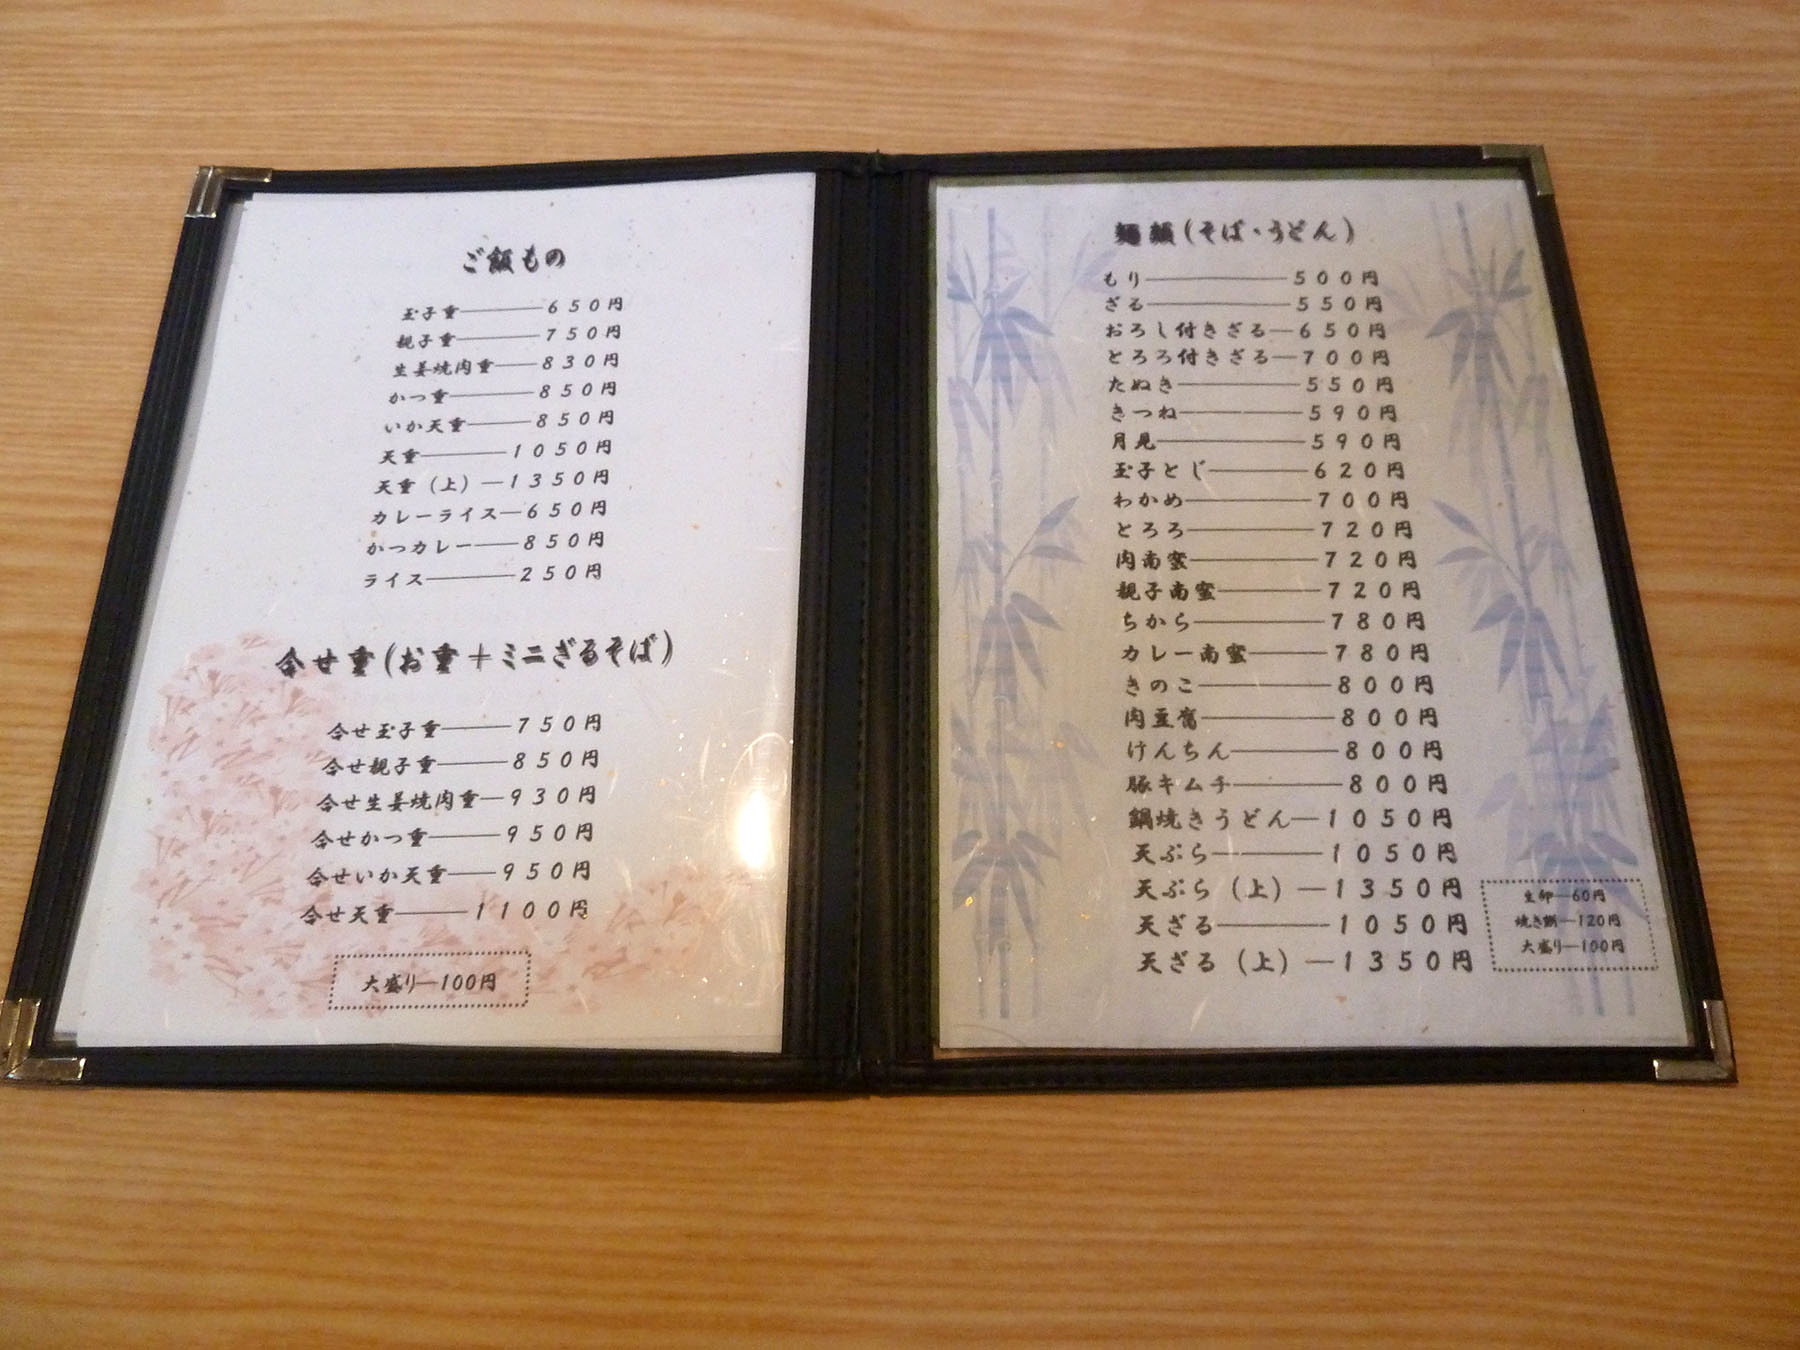 ご飯もの
玉子重――650円
親子重――750円
生姜焼肉重――830円
かつ重――850円
いか天重――850円
天重――1050円
天重（上）―1350円
カレーライス―650円
かつカレー――850円
ライス――250円
合せ重(お重＋ミニざるそば)
合せ玉子重――750円
合せ親子重――850円
合せ生姜焼肉重―930円
合せかつ重――950円
合せいか天重――950円
合せ天重――1100円
大盛り―100円
麺類(そば・うどん)
もり――500円
ざる――550円
おろし付きざる―650円
とろろ付きざる―700円
たぬき――550円
きつね――590円
月見――590円
玉子とじ――620円
わかめ――700円
とろろ――720円
肉南蛮――720円
親子南蛮――720円
ちから――780円
カレー南蛮――780円
きのこ――800円
肉豆腐――800円
けんちん――800円
豚キムチ――800円
鍋焼きうどん―1050円
天ぷら――1050円
天ぷら（上）―1350円
天ざる――1050円
天ざる（上）―1350円
生卵―60円
焼き餅―120円
大盛り―100円